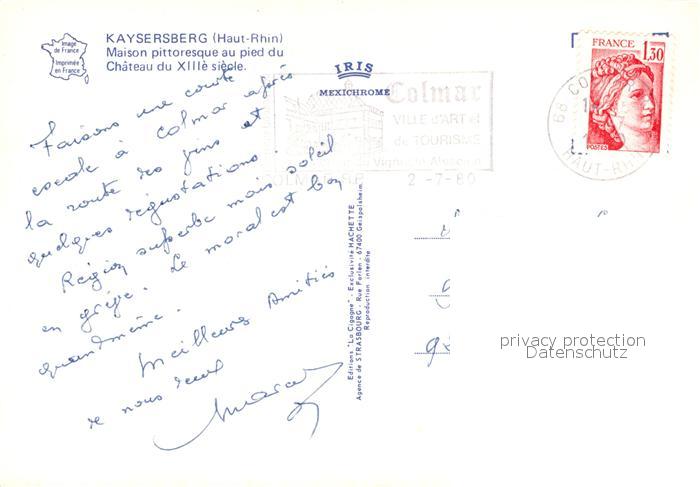 Image
de France
Imprimée
en France
KAYSERSBERG (Haut-Rhin)
Maison pittoresque au pied du
Château du XIIIè siècle.
IRIS
MEXICHROME
Colmar
VILLE d'ART et
de TOURISME
COLMAR
2 -7-80
FRANCE
1,30
POSTES
68 CO
HAUT-RHIN
Faisons une courte
escale à Colmar après
la route des vins et
quelques dégustations.
Région superbe mais soleil
en grève. Le moral est bon
quand même.
Meilleures Amitiés
nous
Marcel
Editions "La Cigogne" - Exclusivité HACHETTE
Agence de STRASBOURG - Rue Forlen - 67400 Geispolsheim.
Reproduction interdite
privacy protection
Datenschutz